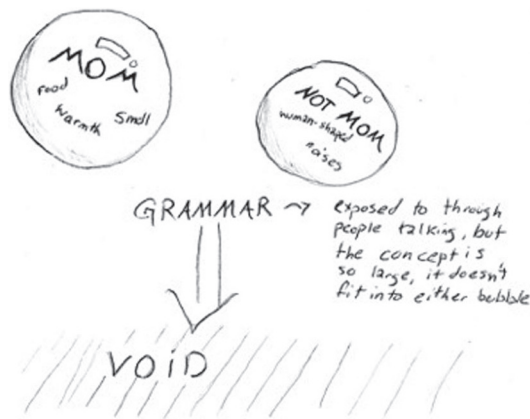 MOM
food
warmth
Smell
NOT MOM
human-shaped
noises
GRAMMAR → exposed to through
people talking, but
the concept is
so large, it doesn't
fit into either bubble
VOID